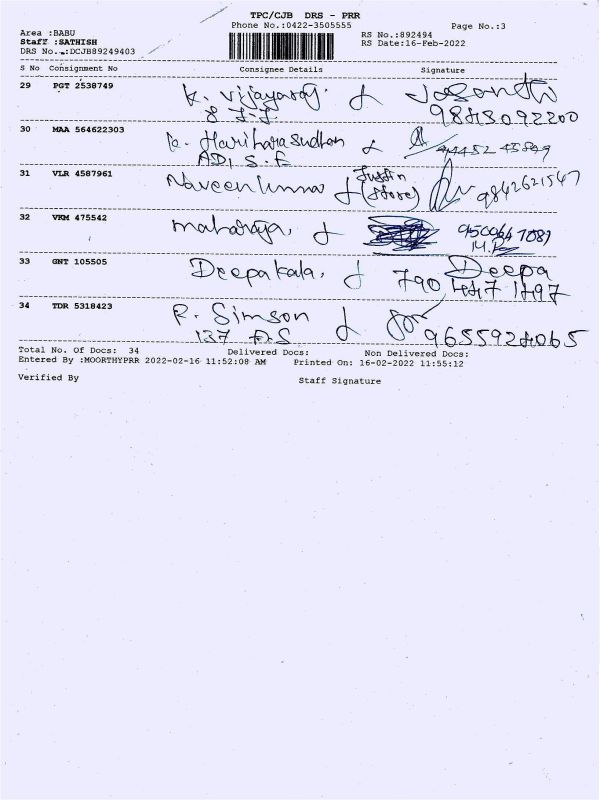 TPC/CJB DRS - PRR
Phone No.:0422-3505555 Page No.:3
Area :BABU RS No.:892494
Staff :SATHISH RS Date:16-Feb-2022
DRS No.:DCJB89249403
S No Consignment No Consignee Details Signature
29 PGT 2538749 K. Vijayaraj
30 MAA 564622303 Hariharasudhan
31 VLR 4587961 Naveenkumar Justin (Store) 9842621547
32 VKM 475542 maharaja,
33 GNT 105505 Deepakala, Deepa
790 447 1497
34 TDR 5318423 R. Simson
137 9655924065
Total No. Of Docs: 34 Delivered Docs: Non Delivered Docs:
Entered By :MOORTHYPRR 2022-02-16 11:52:08 AM Printed On: 16-02-2022 11:55:12
Verified By Staff Signature